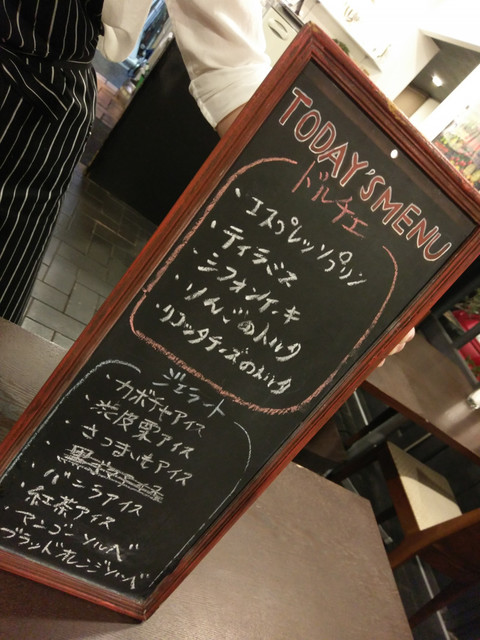 TODAY'S MENU
ドルチェ
・エスプレッソプリン
・ティラミス
・シフォンケーキ
・りんごのトルタ
・リコッタチーズのトルタ
ジェラート
・カボチャアイス
・渋皮栗アイス
・さつまいもアイス
・バニラアイス
・紅茶アイス
・マンゴーソルベ
ブラッドオレンジソルベ